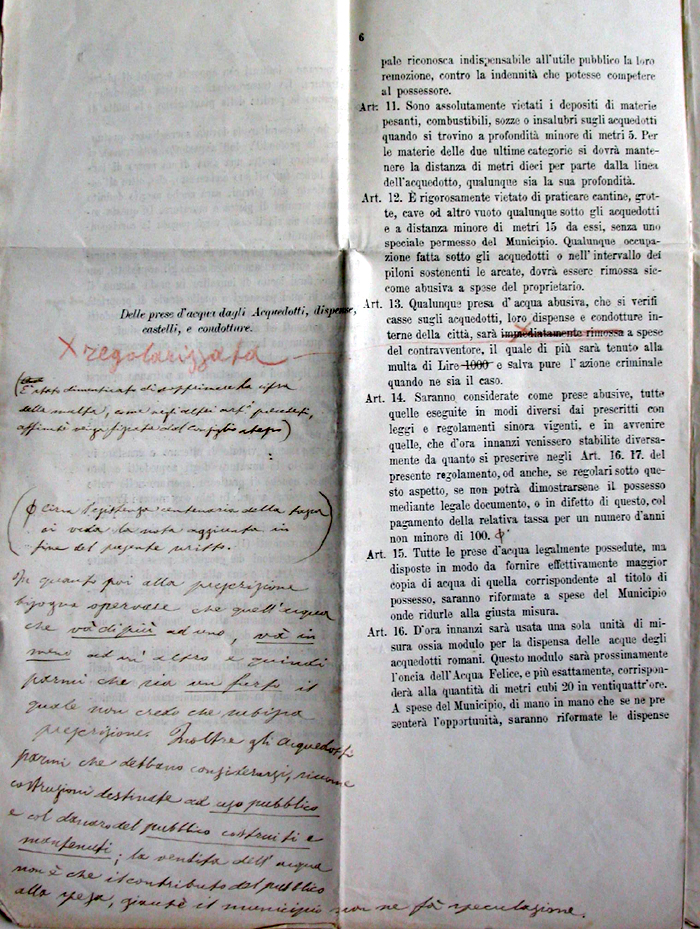 6
pale riconosca indispensabile all'utile pubblico la loro
remozione, contro la indennità che potesse competere
al possessore.
Art. 11. Sono assolutamente vietati i depositi di materie
pesanti, combustibili, sozze o insalubri sugli acquedotti
quando si trovino a profondità minore di metri 5. Per
le materie delle due ultime categorie si dovrà mante-
nere la distanza di metri dieci per parte dalla linea
dell'acquedotto, qualunque sia la sua profondità.
Art. 12. È rigorosamente vietato di praticare cantine, grot-
te, cave od altro vuoto qualunque sotto gli acquedotti
e a distanza minore di metri 15 da essi, senza uno
speciale permesso del Municipio. Qualunque occupa-
zione fatta sotto gli acquedotti o nell'intervallo dei
piloni sostenenti le arcate, dovrà essere rimossa sic-
come abusiva a spese del proprietario.
Delle prese d'acqua dagli Acquedotti, dispense,
castelli, e condotture.
Art. 13. Qualunque presa d'acqua abusiva, che si verifi
casse sugli acquedotti, loro dispense e condotture in-
terne della città, sarà immediatamente rimossa a spese
del contravventore, il quale di più sarà tenuto alla
multa di Lire 1000 e salva pure l'azione criminale
quando ne sia il caso.
Art. 14. Saranno considerate come prese abusive, tutte
quelle eseguite in modi diversi dai prescritti con
leggi e regolamenti sinora vigenti, e in avvenire
quelle, che d'ora innanzi venissero stabilite diversa-
mente da quanto si prescrive negli Art. 16. 17. del
presente regolamento, od anche, se regolari sotto que-
sto aspetto, se non potrà dimostrarsene il possesso
mediante legale documento, o in difetto di questo, col
pagamento della relativa tassa per un numero d'anni
non minore di 100. ϕ
Art. 15. Tutte le prese d'acqua legalmente possedute, ma
disposte in modo da fornire effettivamente maggior
copia di acqua di quella corrispondente al titolo di
possesso, saranno riformate a spese del Municipio
onde ridurle alla giusta misura.
Art. 16. D'ora innanzi sarà usata una sola unità di mi-
sura ossia modulo per la dispensa delle acque degli
acquedotti romani. Questo modulo sarà prossimamente
l'oncia dell'Acqua Felice, e più esattamente, corrispon-
derà alla quantità di metri cubi 20 in ventiquattr'ore.
A spese del Municipio, di mano in mano che se ne pre
senterà l'opportunità, saranno riformate le dispense
X regolarizzata
(È stato dimenticato di sopprimere la cifra
della multa, come negli altri art.i precedenti,
affinchè sia fissata dal Consiglio stesso)
(ϕ Circa l'esistenza centenaria della tassa
si veda la nota aggiunta in
fine del presente scritto.)
In quanto poi alla prescrizione
bisogna osservare che quell'acqua
che và di più ad uno, và in
meno ad un'altro e quindi
parmi che sia un furto il
quale non credo che subisca
prescrizione. Inoltre gli acquedotti
parmi che debbano considerarsi, siccome
costruzioni destinate ad uso pubblico
e col danaro del pubblico costruiti e
mantenuti; la vendita dell'acqua
non è che il contributo del pubblico
alla spesa, giacchè il municipio non ne fà speculazione.